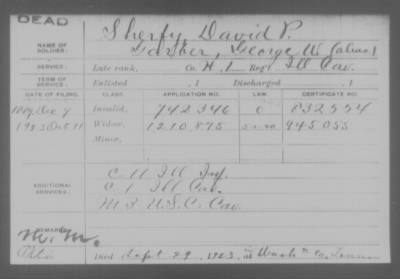 DEAD
Sherfy, David P.
NAME OF SOLDIER:
Garber, George W. (alias)
SERVICE:
Late rank, Co. H, 1 Reg't Ill Cav.
TERM OF SERVICE:
Enlisted , 1 Discharged , 1
DATE OF FILING. CLASS. APPLICATION NO. LAW. CERTIFICATE NO.
Invalid, 742346 832554
Widow, 1210875 945055
Minor,
ADDITIONAL SERVICES:
Ill Inf.
Ill Cav.
U.S.C. Cav
REMARKS:
Died Sept 29, 1923, at Wash'n Co, Tenn